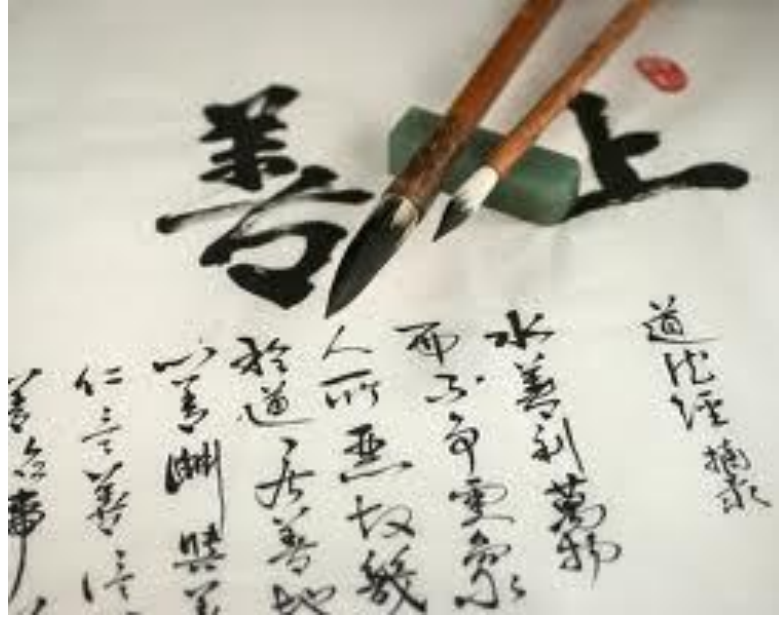 上善
道德經摘录
水善利萬物
而不爭處眾
人所惡故幾
於道居善地
心善淵與善
仁言善信
善治事善